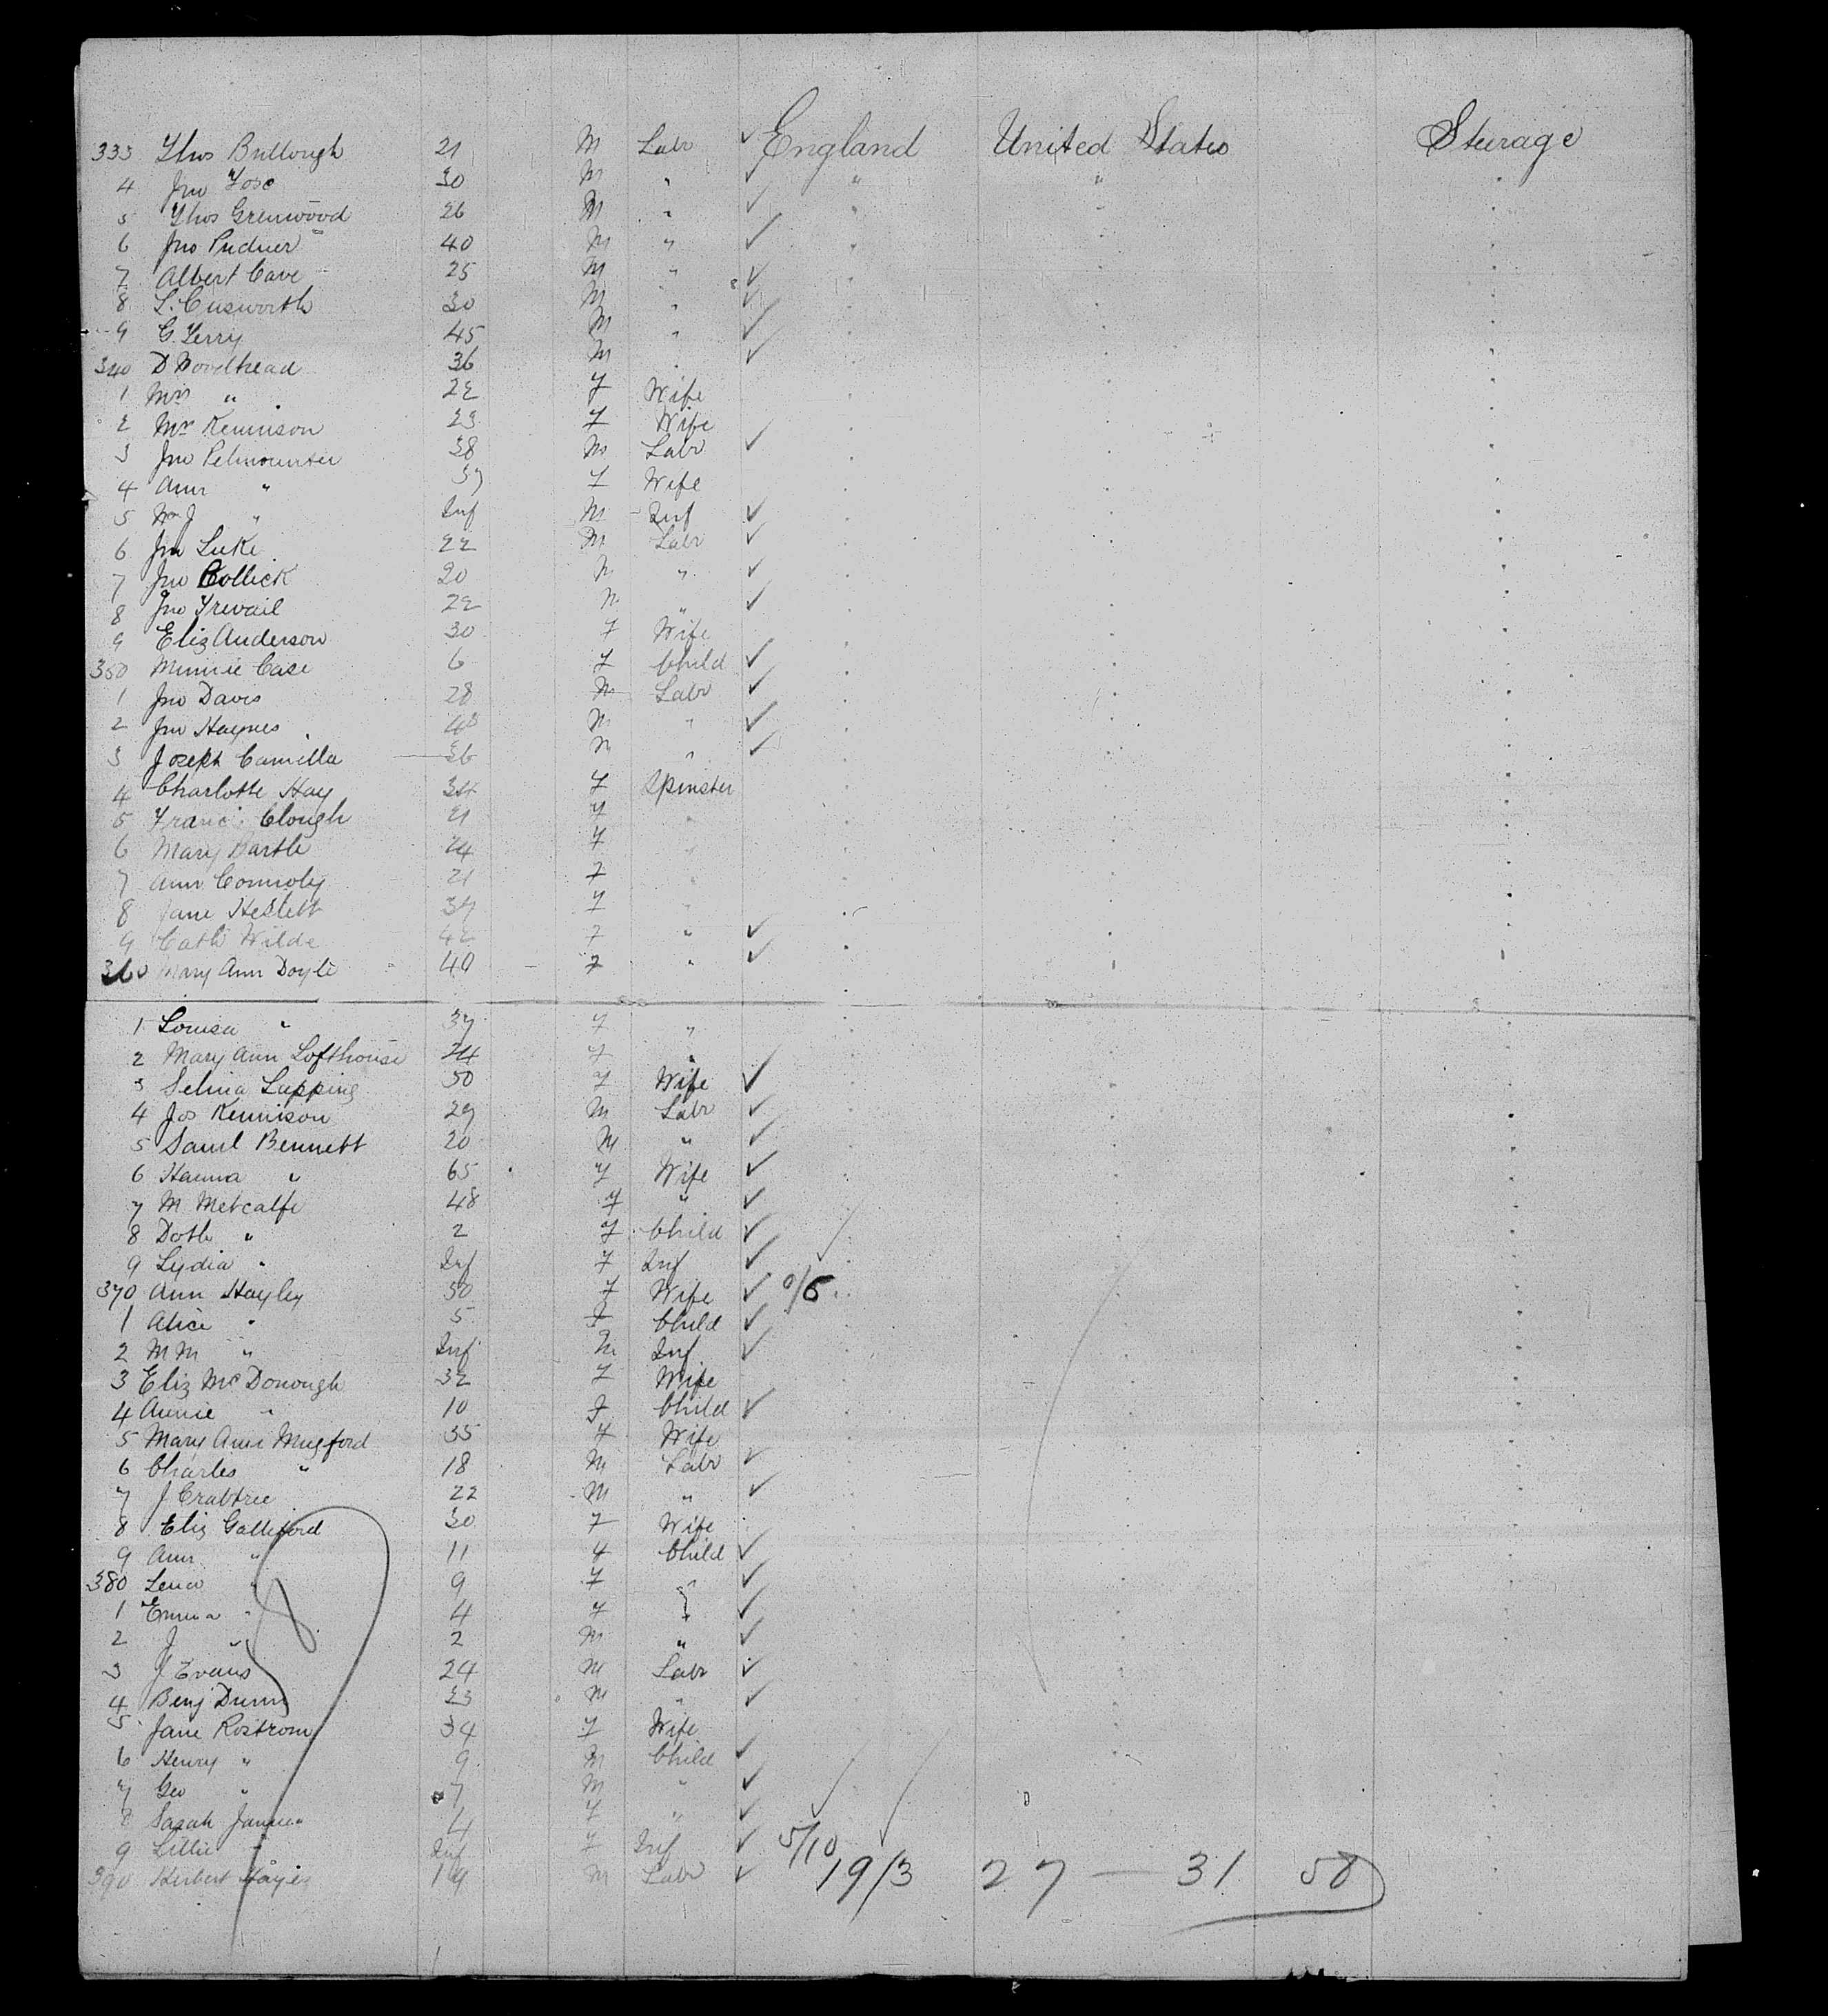 333 Thos Bullough 21 M Labr ✓ England United States Steerage
4 Jno Tose 30 M " ✓ " "
5 Thos Grenwood 26 M " ✓ "
6 Jno Pudner 40 M " ✓ "
7 Albert Cave 25 M " ✓
8 L. Cusworth 30 M " ✓
9 G. Terry 45 M " ✓
340 D Woodhead 36 M ✓
1 Mrs " 22 F Wife
2 Mrs Kennison 23 F Wife
3 Jno Pelmounter 38 M Labr ✓
4 Ann " 37 F Wife
5 Wm J " Inf M Inf ✓
6 Jno Luke 22 M Labr ✓
7 Jno Collick 20 M " ✓
8 Jno Trevail 22 M " ✓
9 Eliz Anderson 30 F Wife
350 Minnie Case 6 F Child ✓
1 Jno Davis 28 M Labr ✓
2 Jno Haynes 43 M " ✓
3 Joseph Camilla 36 M " ✓
4 Charlotte Hay 34 F Spinster
5 Clough 21 F "
6 Mary Bartle 24 F "
7 Ann Connoly 21 F "
8 Jane Heslett 37 F "
9 Cath Wilde 42 F " ✓
360 Mary Ann Doyle 40 F " ✓
1 Louisa " 37 F "
2 Mary Ann Lofthouse 24 F "
3 Selina Lapping 50 F Wife ✓
4 Jos Kennison 27 M Labr ✓
5 Saml Bennett 20 M " ✓
6 Hanna " 65 F Wife ✓
7 M Metcalfe 48 F " ✓
8 Doth " 2 F Child ✓
9 Lydia " Inf F Inf ✓
370 Ann Hayley 30 F Wife ✓ 0/6
1 Alice " 5 F Child ✓
2 M M " Inf M Inf ✓
3 Eliz McDonough 32 F Wife
4 Annie " 10 F Child ✓
5 Mary Ann Mugford 35 F Wife
6 Charles " 18 M Labr ✓
7 J Crabtree 22 M " ✓
8 Eliz Galliford 30 F Wife
9 Ann " 11 F Child ✓
380 Lena " 9 F " ✓
1 Emma " 4 F " ✓
2 J " 2 M " ✓
3 J Evans 24 M Labr ✓
4 Benj Dunn 23 M " ✓
5 Jane Rostrom 34 F Wife
6 Henry " 9 M Child ✓
7 Geo " 7 M " ✓
8 Sarah Jane " 4 F " ✓
9 Lillie " Inf F Inf ✓ 5/10
390 Herbert Hayes 19 M Labr ✓ 19/3 27 — 31 58